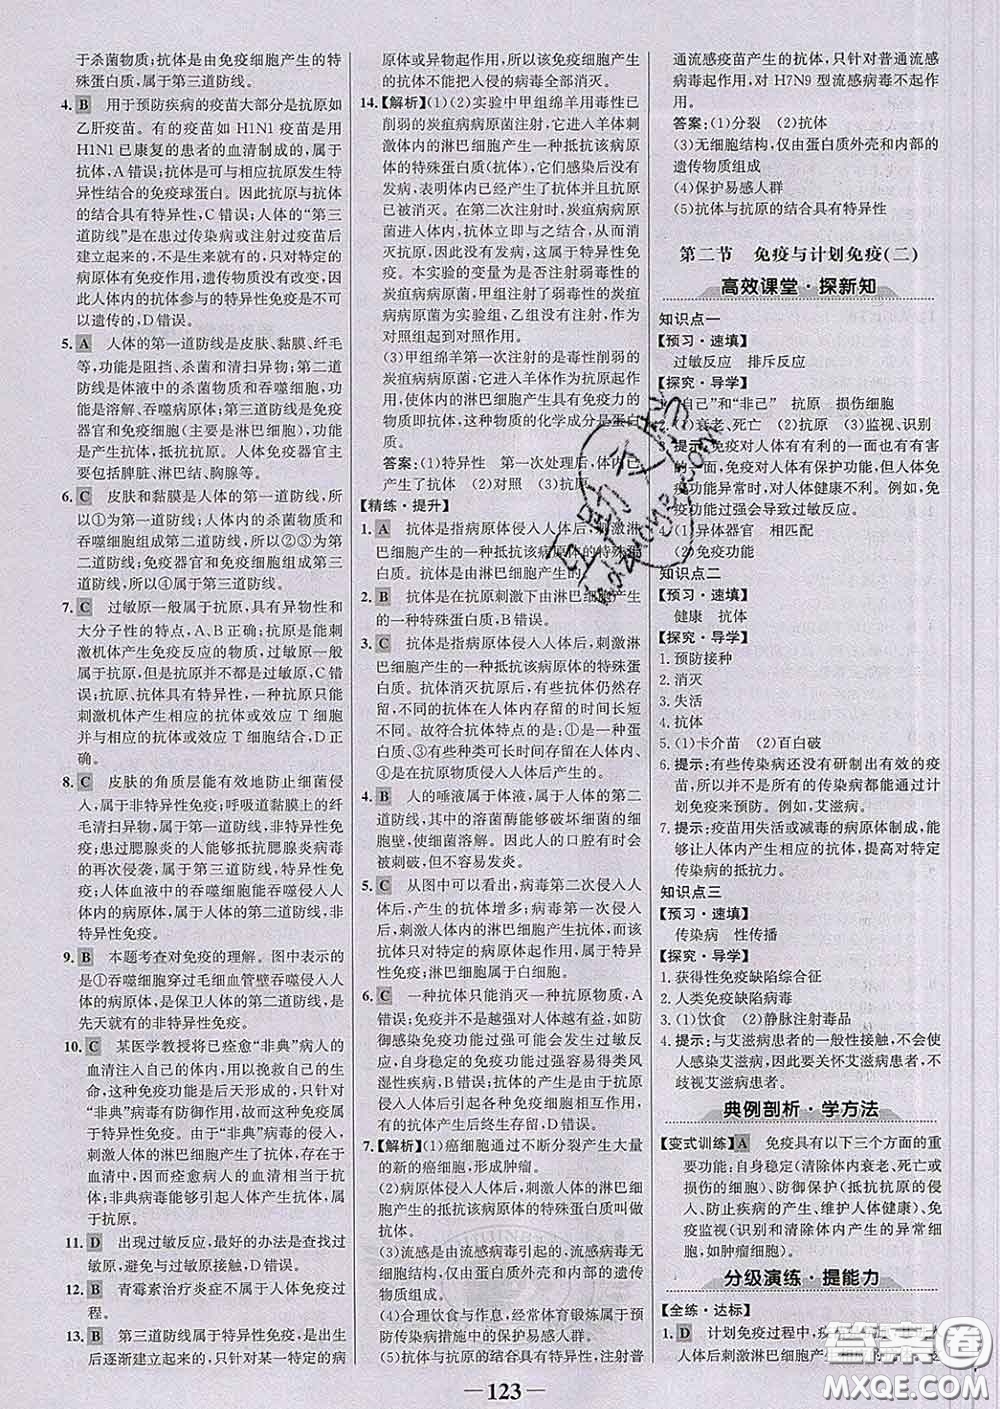 于杀菌物质;抗体是由免疫细胞产生的特
殊蛋白质,属于第三道防线。
4. B 用于预防疾病的疫苗大部分是抗原如
乙肝疫苗。有的疫苗如 H1N1 疫苗是用
H1N1 已康复的患者的血清制成的,属于
抗体,A错误;抗体是可与相应抗原发生特
异性结合的免疫球蛋白。因此抗原与抗体
的结合具有特异性,C错误;人体的“第三
道防线”是在患过传染病或注射过疫苗后
建立起来的,不是与生俱有的,B正确;抗
体本身没有免疫作用,遗传物质没有改变,因
此人体内的抗体参与的特异性免疫是不可
以遗传的,D错误。
5. A 人体的第一道防线是皮肤、黏膜、纤毛
等,功能是阻挡、杀菌和清扫异物;第二道
防线是体液中的杀菌物质和吞噬细胞,功
能是溶解、吞噬病原体;第三道防线是免疫
器官和免疫细胞(主要是淋巴细胞),功能
是产生抗体,抵抗抗原。人体免疫器官主
要包括脾脏、淋巴结、胸腺等。
6. C 皮肤和黏膜是人体的第一道防线,所
以①为第一道防线;人体内的杀菌物质和
吞噬细胞组成第二道防线,所以②③为第
二道防线;免疫器官和免疫细胞组成第三
道防线,所以④属于第三道防线。
7. C 过敏原一般属于抗原,具有异物性和
大分子性的特点,A、B正确;抗原是能刺
激机体产生免疫反应的物质,过敏原一般
属于抗原,但是抗原并不都是过敏原,C错
误;抗原、抗体具有特异性,一种抗原只能
刺激机体产生相应的抗体或效应 T 细胞
并与相应的抗体或效应 T 细胞结合,D正
确。
8. C 皮肤的角质层能有效地防止细菌侵
入,属于非特异性免疫;呼吸道黏膜上的纤
毛清扫异物,属于第一道防线,非特异性免
疫;患过腮腺炎的人能够抵抗腮腺炎病毒
的再次侵袭,属于第三道防线,特异性免
疫;人体血液中的吞噬细胞能吞噬侵入人
体内的病原体,属于人体的第二道防线,非
特异性免疫。
9. B 本题考查对免疫的理解。图中表示的
是①吞噬细胞穿过毛细血管壁吞噬侵入人
体的病原体,是保卫人体的第二道防线,是
先天就有的非特异性免疫。
10. C 某医学教授将已痊愈“非典”病人的
血清注入自己的体内,用以挽救自己的生
命,这种免疫功能是后天形成的,只针对
“非典”病毒有防御作用,故而这种免疫属
于特异性免疫。由于抗体主要存在于血清
中,因而痊愈病人的血清相当于抗体;非典
病毒能够引起人体产生抗体,属于抗原。
11. D 出现过敏反应,最好的办法是查找过
敏原,避免与过敏原接触,D错误。
12. B 青霉素治疗炎症不属于人体免疫过
程。
13. B 第三道防线属于特异性免疫,是出生
后逐渐建立起来的,只针对某一特定的病
原体或异物起作用,所以人体免疫细胞产生
的抗体不能把入侵的病毒全部消灭。
14.【解析】(1)(2)实验中甲组绵羊用毒性已
削弱的炭疽病病原菌注射,它进入羊体刺
激体内的淋巴细胞产生一种抵抗该病原体
的特殊蛋白质(抗体),它们感染后没有
发病,表明体内已经产生了抗体并且病原菌
已被消灭。在第二次注射时,炭疽病病原菌
侵入体内,抗体立即与之结合,促使其从
体内清除,因此没有发病,这属于特异性免
疫。本实验的变量为是否注射弱毒性的炭
疽病病原菌,甲组注射过弱毒性的炭疽病
病原菌为实验组,乙组没有注射作为对照,
对照组起到对照作用。
(3)甲组绵羊第一次注射的是毒性削弱的
炭疽病病原菌,它进入羊体作为抗原起作
用,使体内的淋巴细胞产生具有免疫力的
物质即抗体,这种物质的化学成分是蛋白
质。
答案:(1)特异性 第一次处理后,体内已
产生了抗体 (2)对照 (3)抗原
【精练·提升】
1. A 抗体是指病原体侵入人体后,刺激淋
巴细胞产生的一种抵抗该病原体的特殊蛋
白质。抗体是由淋巴细胞产生的。
2. B 抗体是在抗原刺激下由淋巴细胞产生
的一种特殊蛋白质,B错误。
3. C 抗体是指病原体侵入人体后,刺激淋
巴细胞产生的一种抵抗该病原体的特殊蛋
白质。抗体消灭抗原后,有些抗体仍然存
留,不同的抗体在人体内存留的时间长短
不同。故符合抗体特点的是:①是一种蛋白
质、③有些可长时间存留在人体内、
④是在抗原物质侵入人体后产生的。
4. B 人的唾液属于体液,属于人体的第二
道防线,其中的溶菌酶能够破坏细菌的细
胞壁,使细菌溶解。因此人的口腔有时会
被刺破,但不容易发炎。
5. C 从图中可以看出,病毒第二次侵入人
体后,产生的抗体增多;病毒第一次入侵
时,该淋巴细胞参与产生了抗体,而该抗
体只对特定的病原体起作用,属于特异性
免疫。淋巴细胞属于白细胞。
6. C 一种抗体只能消灭一种抗原物质,A
错误;免疫并不是越强对人体越有利,如
防御感染免疫功能过强时可能会发生超敏
反应,自身稳定的免疫功能过强容易得类风
湿性疾病,B错误;抗体的产生是由于抗原
侵入人体后引起多种免疫细胞相互作用,
有的抗体产生后终生存留,D错误。
7.【解析】(1)癌细胞通过不断分裂产生大量
的新的癌细胞,形成肿瘤。
(2)病原体侵入人体后,刺激人体的淋巴
细胞产生的抵抗该病原体的特殊蛋白质叫做
抗体。
(3)流感是由流感病毒引起的,流感病毒
无细胞结构,仅由蛋白质外壳和内部的遗传
物质组成。
(4)合理饮食与作息,经常体育锻炼属于
预防传染病措施中的保护易感人群。
(5)抗体与抗原的结合具有特异性,注射普
通流感疫苗产生的抗体,只针对普通流感
病毒起作用,对 H7N9 型流感病毒不起作
用。
答案:(1)分裂 (2)抗体
(3)无细胞结构,仅由蛋白质外壳和内部的
遗传物质组成
(4)保护易感人群
(5)抗体与抗原的结合具有特异性
第二节 免疫与计划免疫(二)
高效课堂·探新知
知识点一
【预习·速填】
过敏反应 排斥反应
【探究·导学】
1.“自己”和“非己” 抗原 损伤细胞
2. (1)衰老、死亡 (2)抗原 (3)监视、识别
3. 提示:免疫对人体有有利的一面也有有害
的一面,人体有保护功能,但人体的免疫
功能异常时,对人体健康不利。例如,免疫
功能过强会导致过敏反应。
4. (1)异体器官 相匹配
(2)免疫功能
知识点二
【预习·速填】
健康 抗体
【探究·导学】
1. 预防接种
2. 消灭
3. 失活
4. 抗体
5. (1)卡介苗 (2)百白破
6. 提示:有些传染病还没有研制出有效的疫
苗,所以并不是所有的传染病都能通过计
划免疫来预防。例如,艾滋病。
7. 提示:疫苗用失活或减毒的病原体制成,能
够让人体内产生相应的抗体,提高对特定
传染病的抵抗力。
知识点三
【预习·速填】
传染病 性传播
【探究·导学】
1. 获得性免疫缺陷综合征
2. 人类免疫缺陷病毒
3. (1)饮食 (2)静脉注射毒品
4. 提示:与艾滋病患者的一般性接触,不会使
人感染艾滋病,因此要关怀艾滋病患者,不
歧视艾滋病患者。
典例剖析·学方法
【变式训练】A 免疫具有以下三个方面的重
要功能:自身稳定(清除体内衰老、死亡或
损伤的细胞)、防御保护(抵抗抗原的侵
入、防止疾病的产生、维护人体健康)、
免疫监视(识别和清除体内产生的异常细
胞,如肿瘤细胞)。
分级演练·提能力
【全练·达标】
1. D 计划免疫过程中,疫
人体后刺激淋巴细胞产生
123
答案卷
MXQE.COM